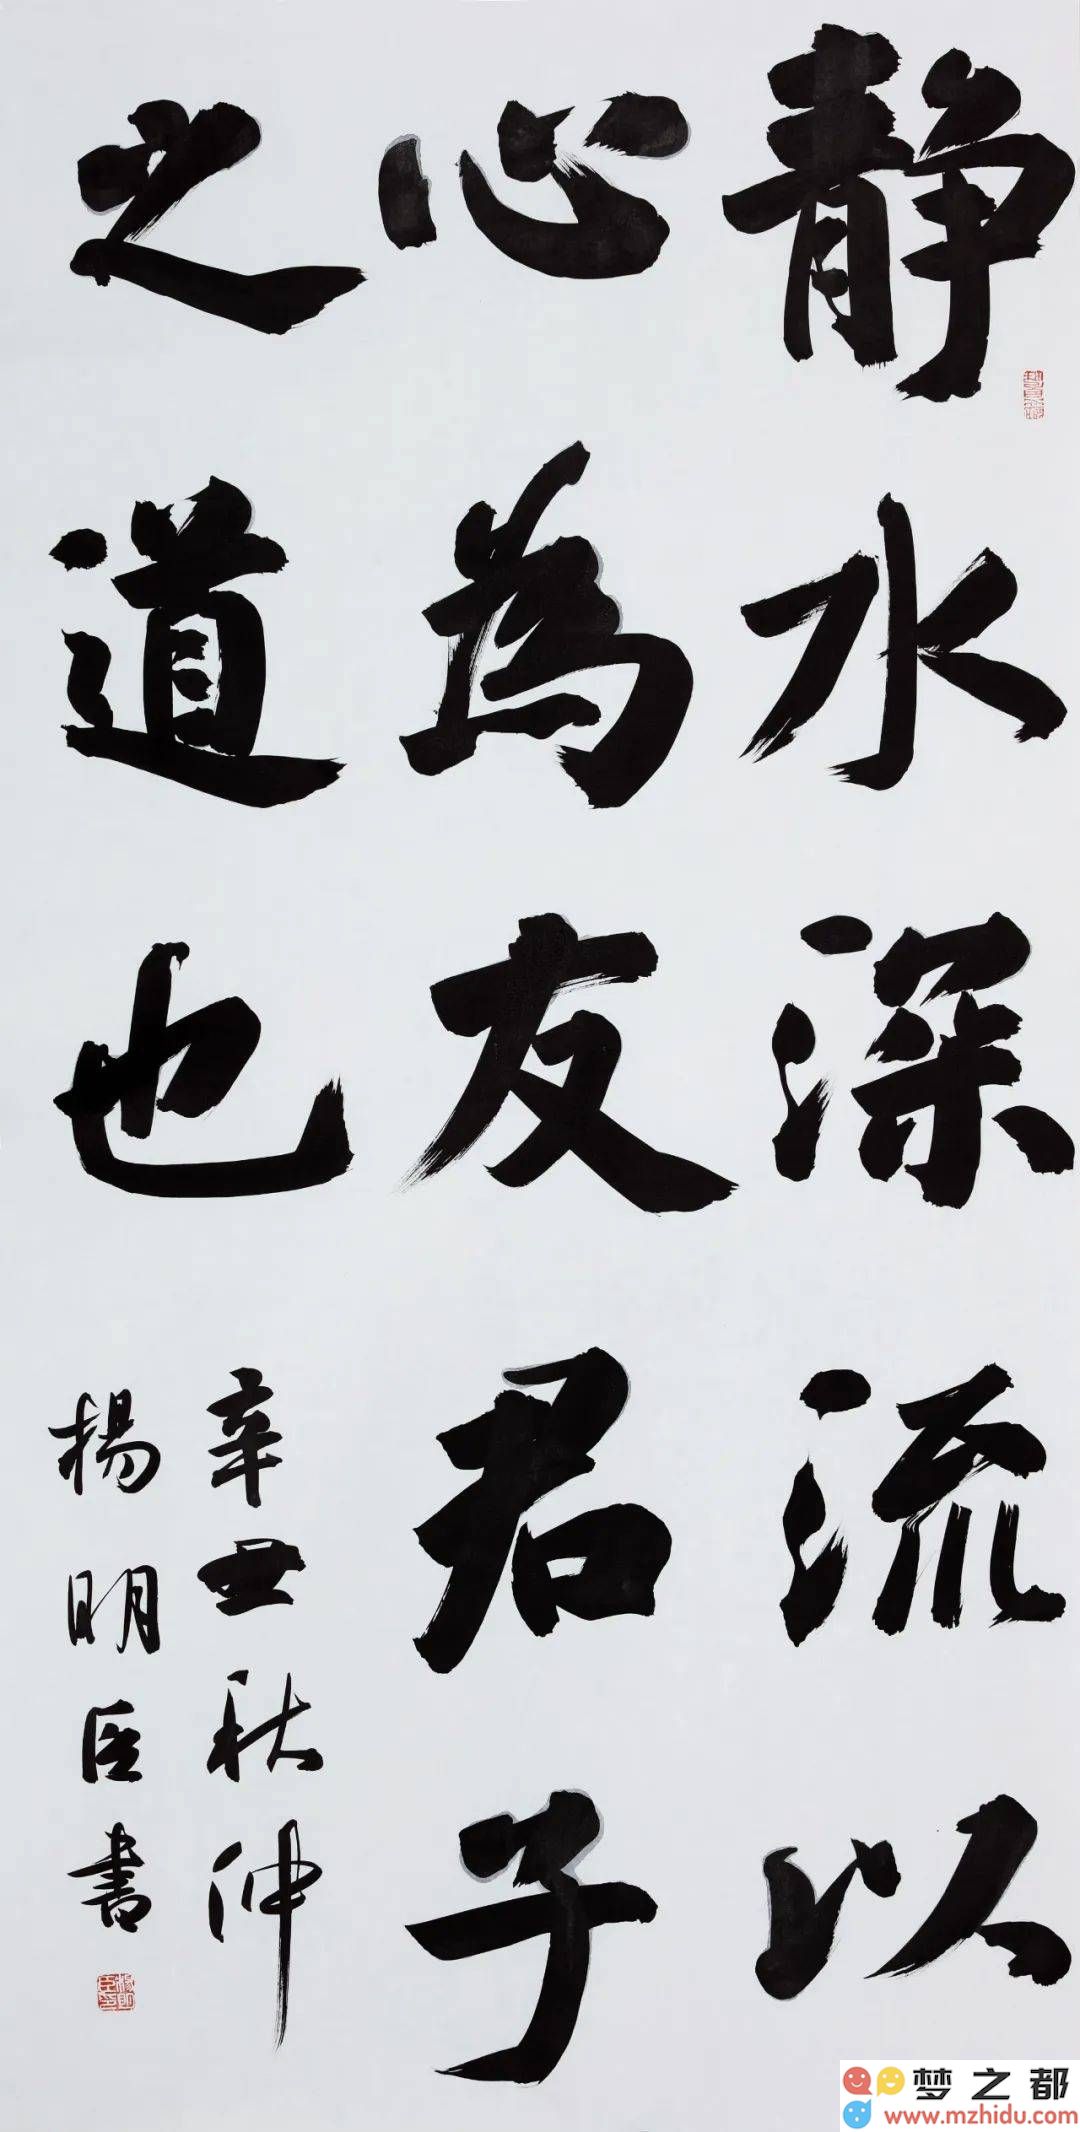 静水深流以
心为友君子
之道也
辛丑秋仲
杨明臣書
梦之都
www.mzhidu.com